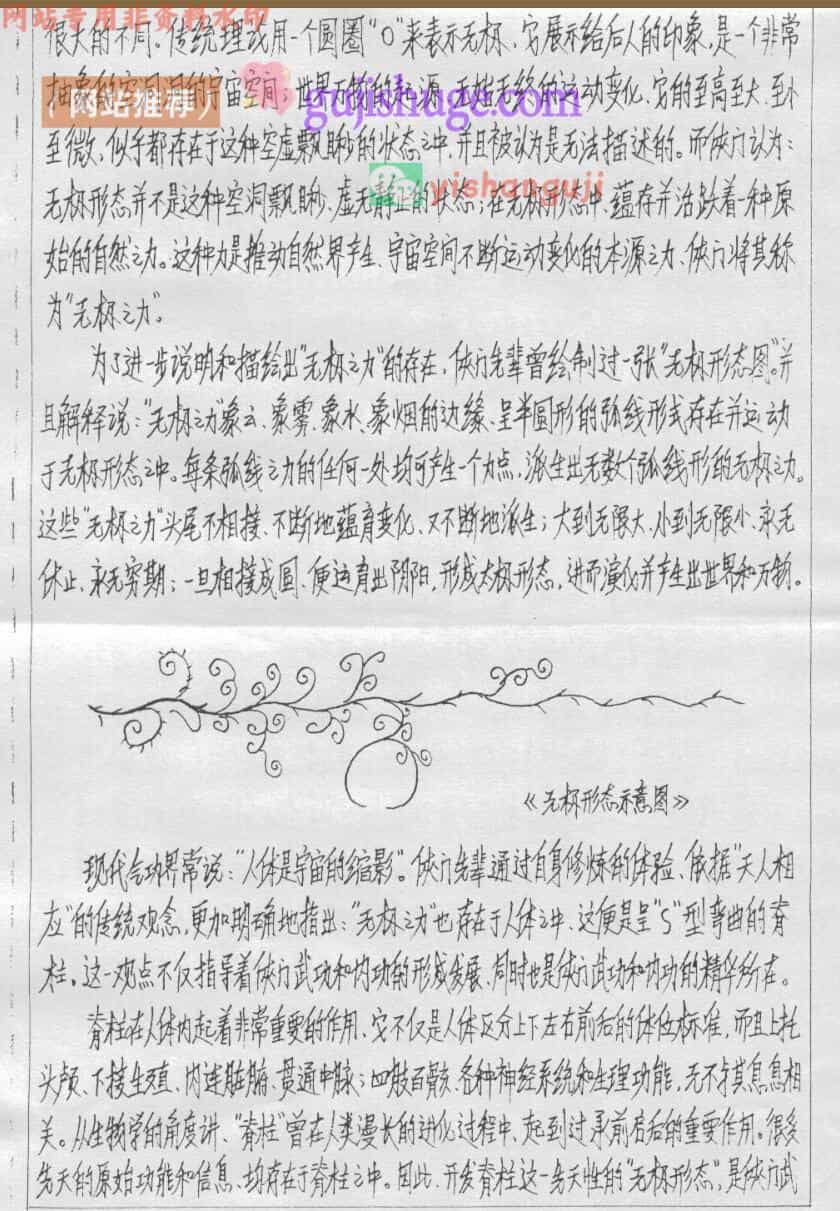 网站专用非资料水印
很大的不同。传统理或用一个圆圈"O"来表示无极、它展示给后人的印象,是一个非常
抽象的空间里的宇宙空间;世界万物的起源、无始无终的运动变化、它的至高至大、至小
(网站推荐) gujishuge.com
至微、似乎都存在于这种空虚飘眇的状态之中、并且被认为是无法描述的。而侠门认为:
yishanguji
无极形态并不是这种空洞飘眇、虚无静止的状态;在无极形态中、蕴存并活跃着一种原
始的自然之力。这种力是推动自然界产生、宇宙空间不断运动变化的本源之力、侠门将其称
为"无极之力"。
为了进一步说明和描绘出"无极之力"的存在、侠门先辈曾绘制过一张"无极形态图"。并
且解释说:"无极之力"象云、象雾、象水、象烟的边缘、呈半圆形的弧线形式存在并运动
于无极形态之中。每条弧线之力的任何一处均可产生一个力点、派生出无数个弧线形的无极之力。
这些"无极之力"头尾不相接、不断地蕴育变化、又不断地派生;大到无限大、小到无限小、永无
休止、永无穷期;一旦相接成圆、便运育出阴阳、形成太极形态、进而演化并产生出世界和万物。
《无极形态示意图》
现代气功界常说:"人体是宇宙的缩影"。侠门先辈通过自身修炼的体验、依据"天人相
应"的传统观念,更加明确地指出:"无极之力"也存在于人体之中、这便是呈"S"型弯曲的脊
柱。这一观点不仅指导着侠门武功和内功的形成发展、同时也是侠门武功和内功的精华所在。
脊柱在人体内起着非常重要的作用、它不仅是人体区分上下左右前后的体位标准,而且上托
头颅、下接生殖、内连脏腑、贯通中脉;四肢百骸、各种神经系统和生理功能,无不与其息息相
关。从生物学的角度讲、"脊柱"曾在人类漫长的进化过程中、起到过承前启后的重要作用。很多
先天的原始功能和信息、均存在于脊柱之中。因此、开发脊柱这一先天性的"无极形态",是侠门武